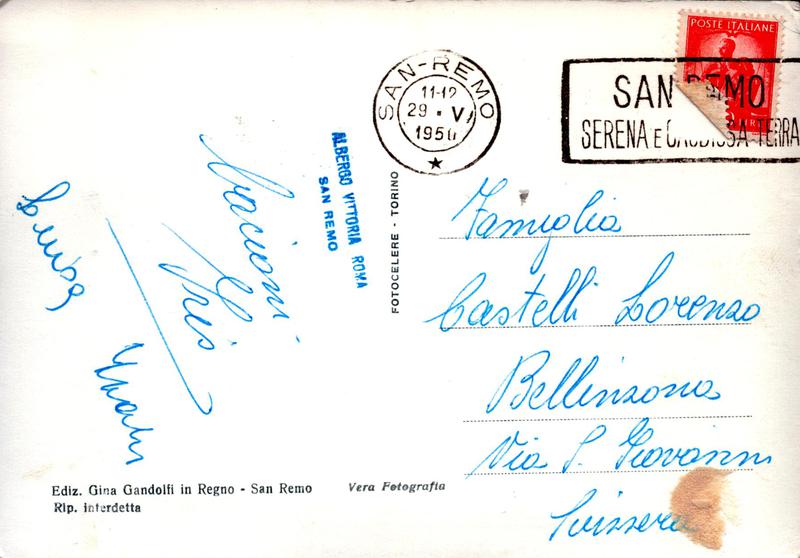 POSTE ITALIANE
SAN-REMO
11-12
29 · V
1950
SAN REMO
SERENA E GAUDIOSA TERRA
ALBERGO VITTORIA ROMA
SAN REMO
FOTOCELERE - TORINO
Bacioni
Iris
Luisa
Famiglia
Castelli Lorenzo
Bellinzona
Via S. Giovanni
Svizzera
Ediz. Gina Gandolfi in Regno - San Remo
Rip. interdetta
Vera Fotografia